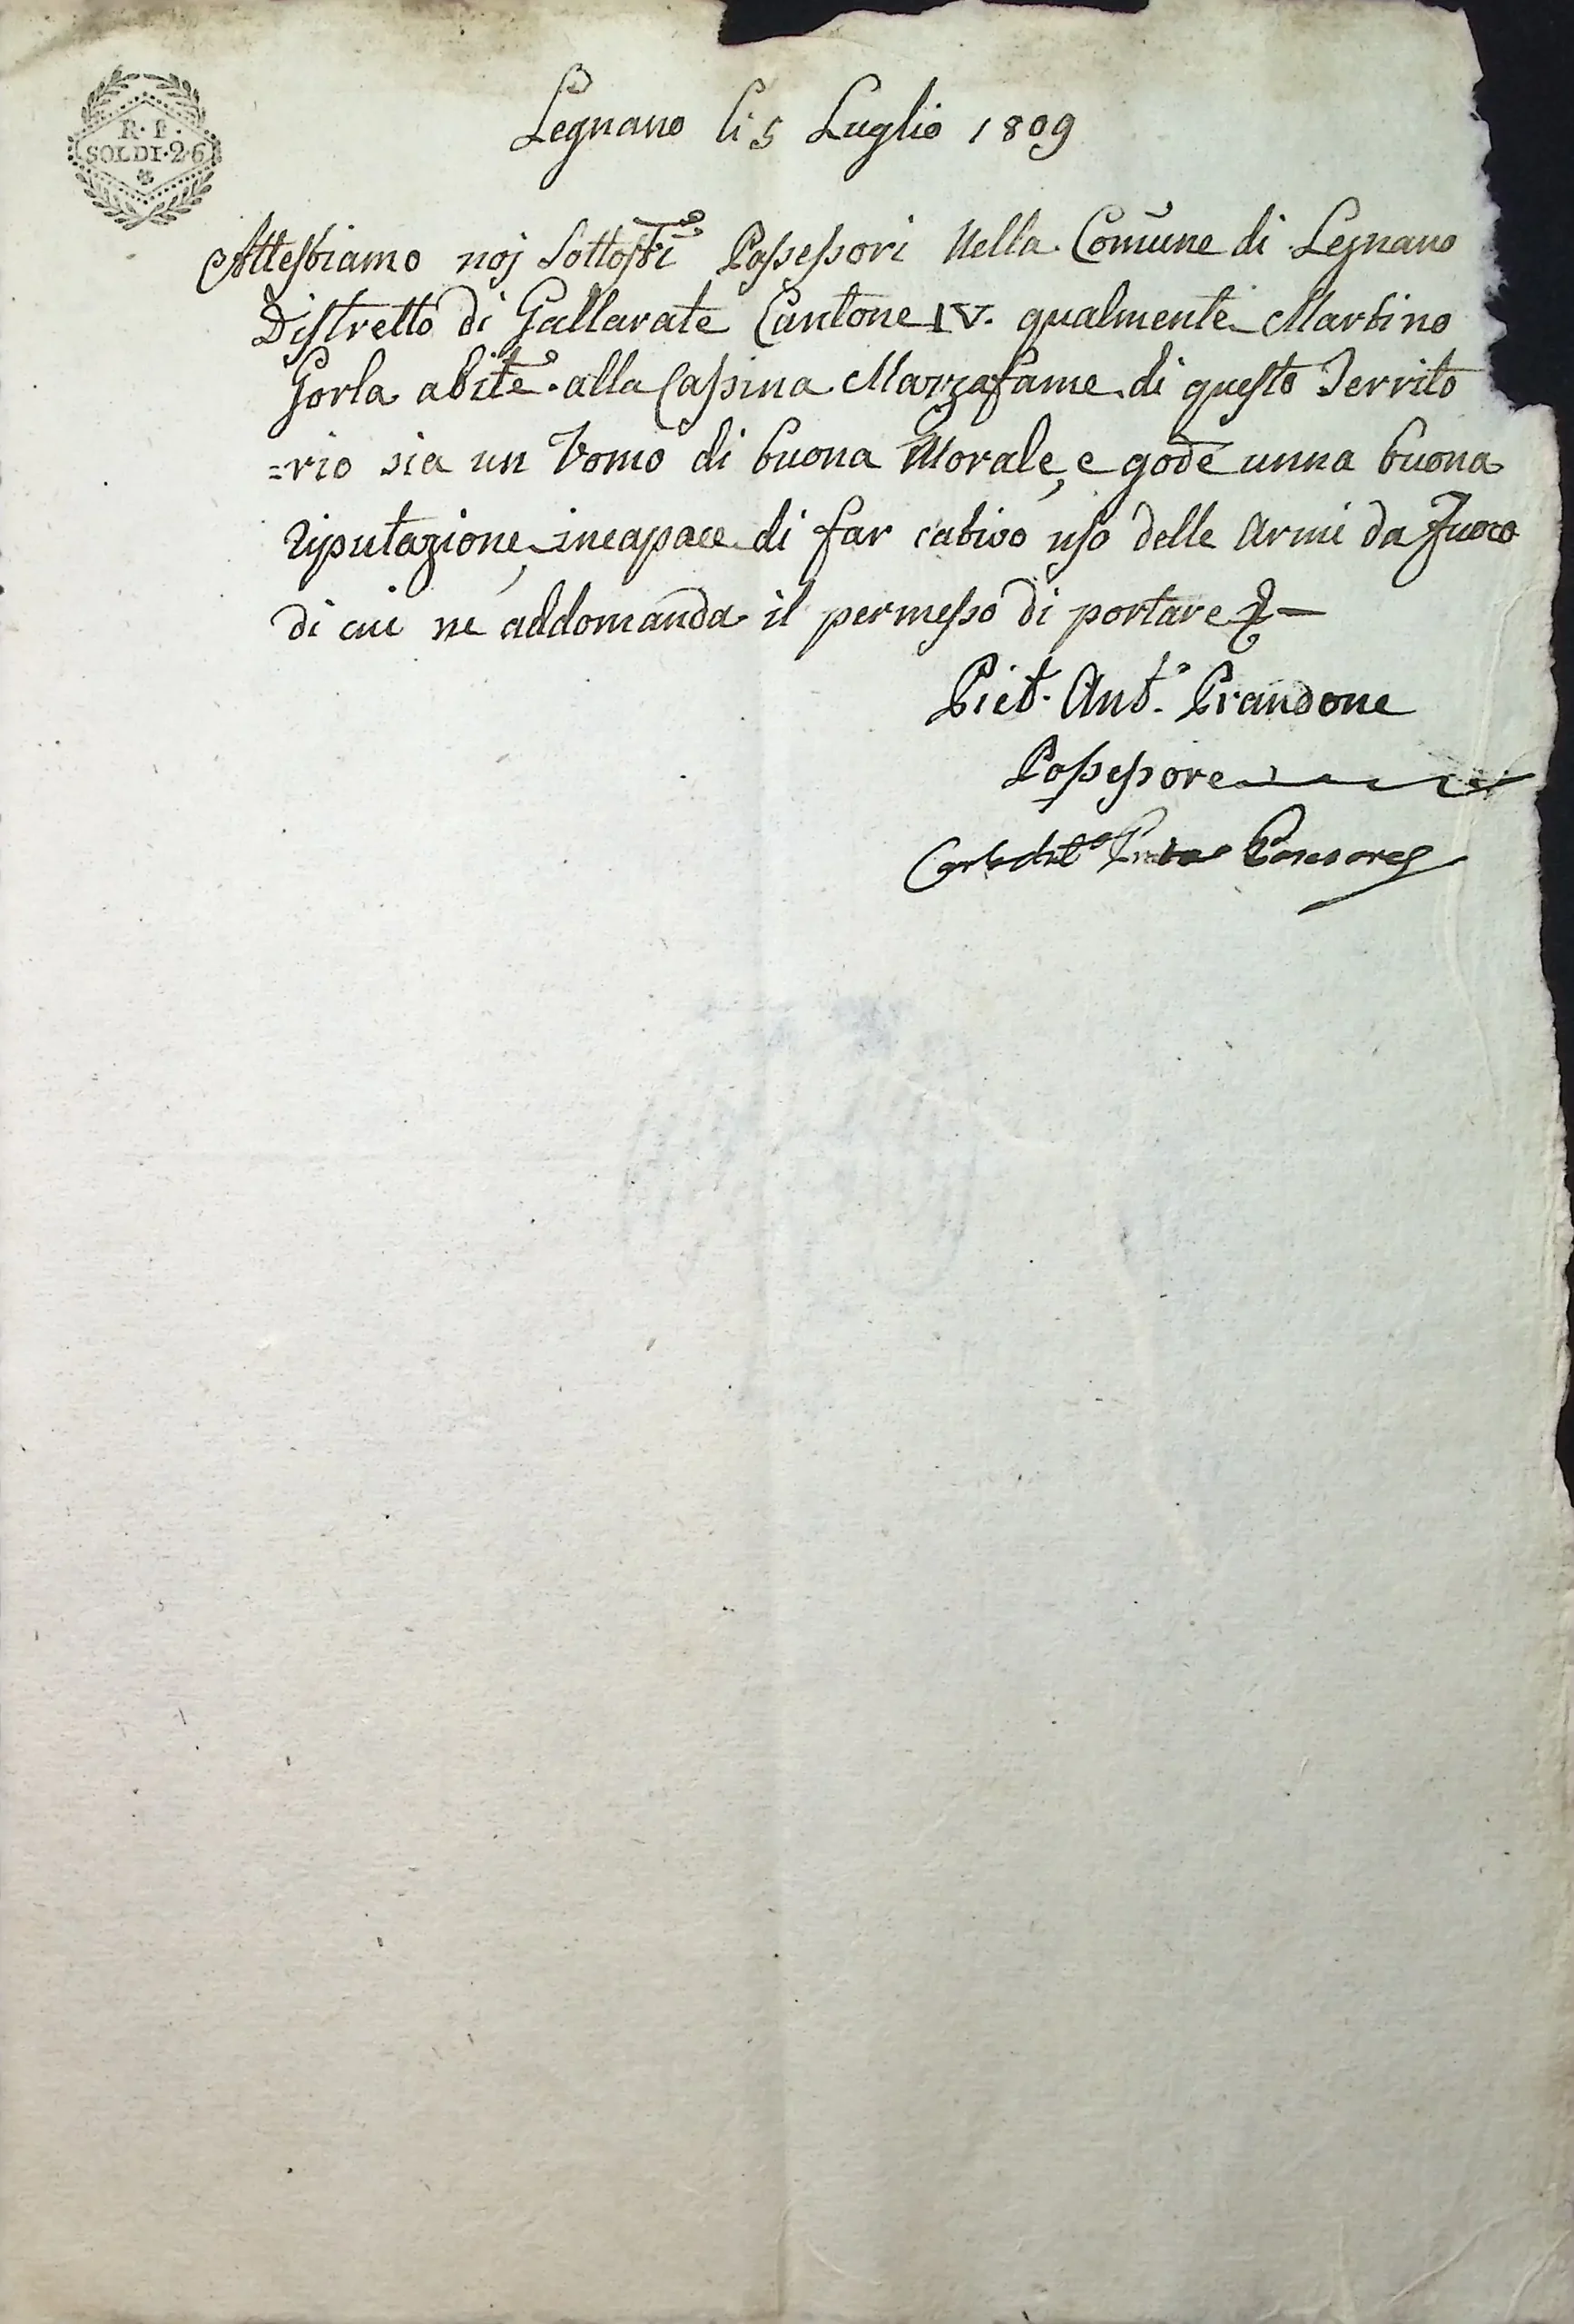 R. I.
SOLDI·26
Legnano li 5 Luglio 1809
Attestiamo noj Sottostti Possessori Nella Comune di Legnano
Distretto di Gallarate Cantone IV. qualmente Martino
Gorla abite. alla Cassina Mazzafame di questo Territo
=rio sia un Vomo di buona Morale, e gode unna buona
riputazione, incapace di far cativo uso delle Armi da Fuoco
di cui ne addomanda il permesso di portare
Piet. Ant.o Prandone
Possessore